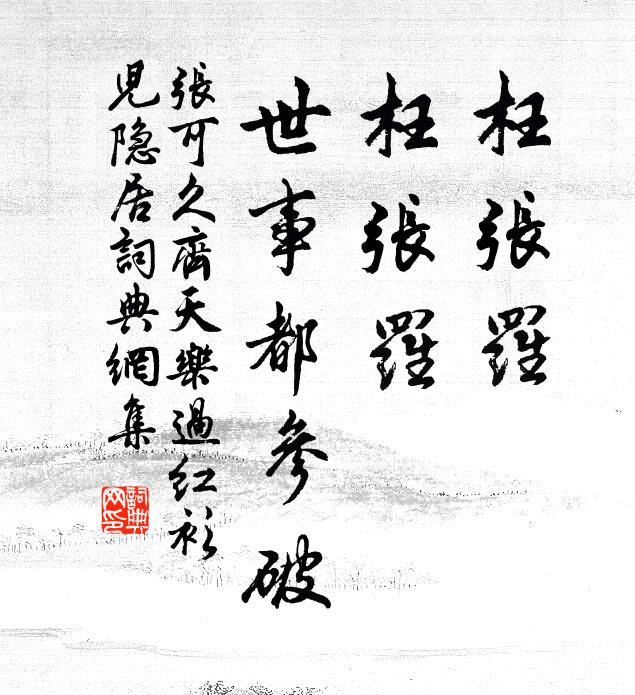 枉張羅
枉張羅
世事都參破
張可久齊天樂過红衫
兒隐居詞典網集
詞典网印